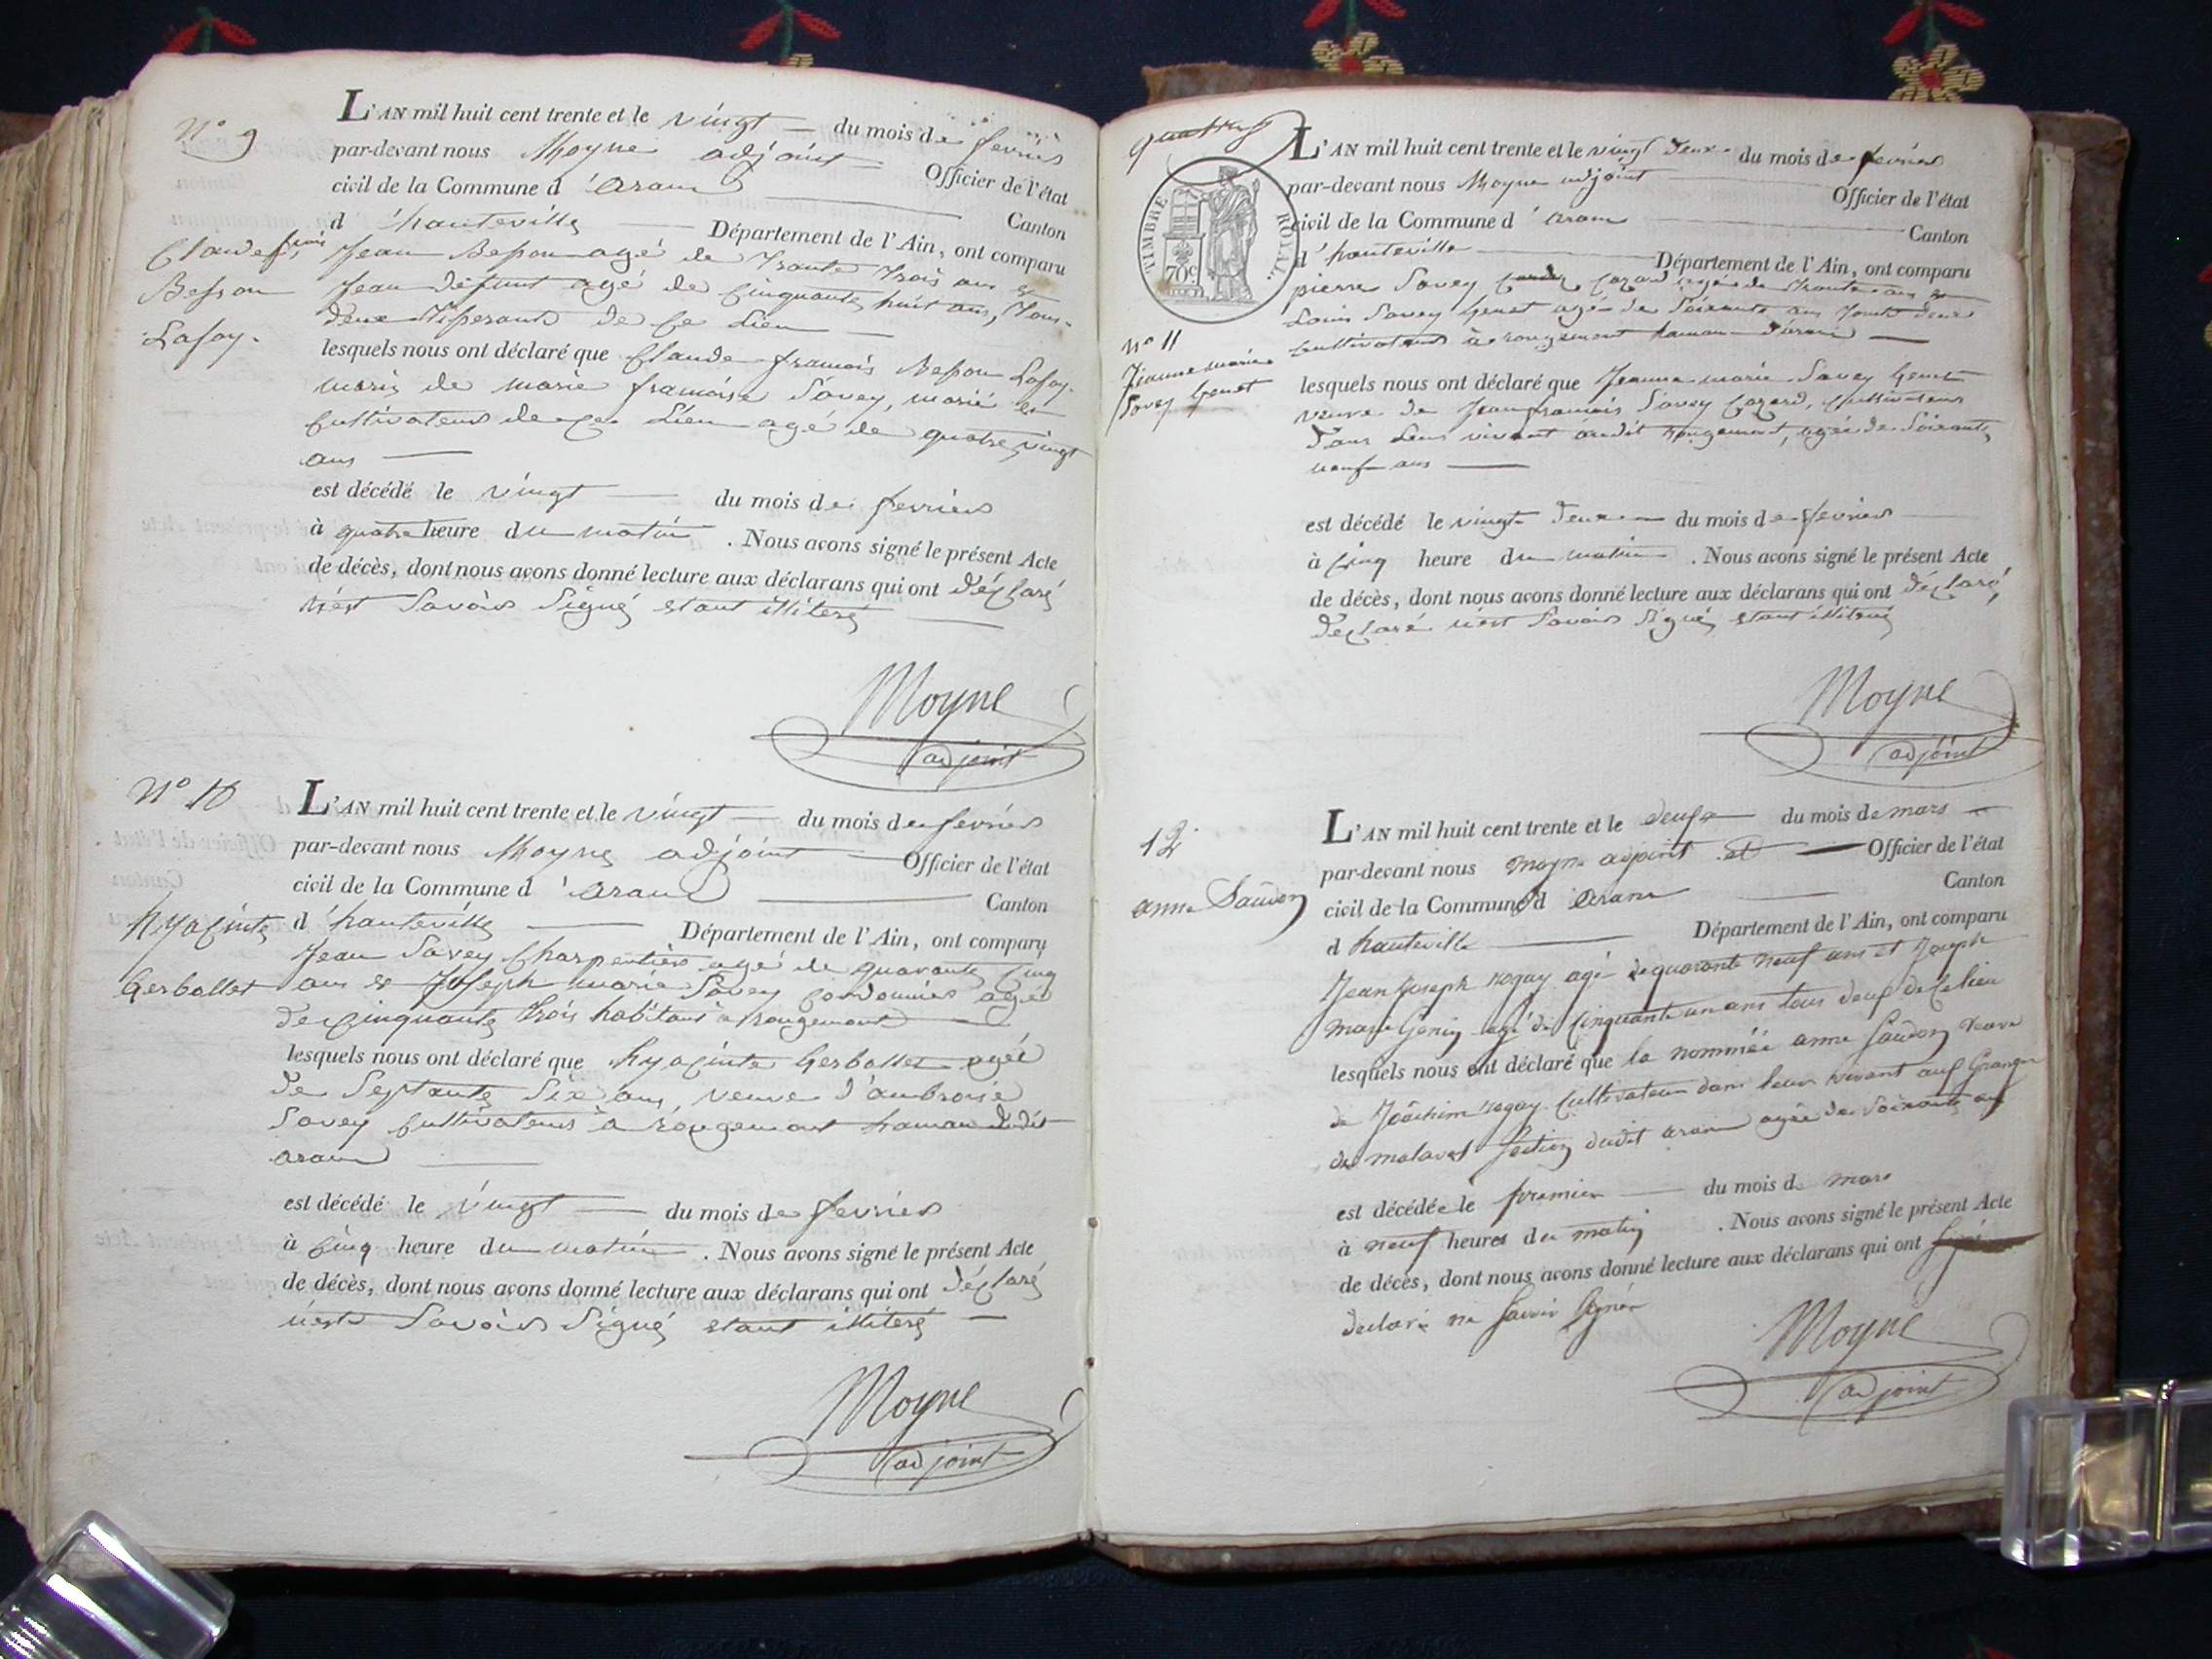 N° 9
L'AN mil huit cent trente et le vingt du mois de fevrier
par-devant nous Moyne adjoint Officier de l'état
civil de la Commune d'aranc
Canton
d'hauteville Département de l'Ain, ont comparu
Claude f.cois
Besson
Lafay.
Jean Besson agé de trante trois ans et
Jean défunt agé de Cinquante huit ans, tous
deux Tisserands de Ce Lieu
lesquels nous ont déclaré que Claude francois Besson Lafay.
maris de marie francoise Savey, marié et
Cultivateurs de Ce Lieu agé de quatre vingt
ans
est décédé le vingt du mois de fevrier
à quatre heure du matin . Nous avons signé le présent Acte
de décès, dont nous avons donné lecture aux déclarans qui ont déclaré
Savoir Signé etant illiteré
Moyne
adjoint
N° 10
L'AN mil huit cent trente et le vingt du mois de fevrier
par-devant nous Moyne adjoint Officier de l'état
civil de la Commune d'aranc
Canton
d'hauteville Département de l'Ain, ont comparu
hyacinte
Gerbollet
Jean Savey Charpentier agé de quarante Cinq
ans et Joseph marie Savey Cordonnier agé
de Cinquante trois habitans a rougemont
lesquels nous ont déclaré que hyacinte Gerbollet agée
de Septante Six ans, veuve d'ambroise
Savey Cultivateurs à rougemont hamau dudit
aranc
est décédé le vingt du mois de fevrier
à Cinq heure du matin . Nous avons signé le présent Acte
de décès, dont nous avons donné lecture aux déclarans qui ont déclaré
Savoir Signé etant illiteré
Moyne
adjoint
TIMBRE ROYAL.
70c
L'AN mil huit cent trente et le vingt deux du mois de fevrier
par-devant nous Moyne adjoint Officier de l'état
civil de la Commune d'aranc
Canton
d'hauteville Département de l'Ain, ont comparu
N° 11
Jeanne marie
Savey Genet
pierre Savey Cazard agé de trante ans et
Louis Savey Genet agé de Soixante ans touts deux
Cultivateurs à rougemont hamau d'aranc
lesquels nous ont déclaré que Jeanne marie Savey Genet
veuve de Jean francois Savey Cazard, Cultivateurs
dans Leur vivant audit rougemont, agée de Soixante
neuf ans
est décédé le vingt deux du mois de fevrier
à Cinq heure du matin . Nous avons signé le présent Acte
de décès, dont nous avons donné lecture aux déclarans qui ont déclaré,
declaré Savoir Signé, etant illiteré
Moyne
adjoint
12
anne Saudon
L'AN mil huit cent trente et le deux du mois de mars
par-devant nous moyne adjoint et Officier de l'état
civil de la Commune d aranc
Canton
d hauteville Département de l'Ain, ont comparu
Jean Joseph rogay agé de quarante neuf ans et Joseph
marie Genin agé de Cinquante un ans tous deux de Ce lieu
lesquels nous ont déclaré que la nommée anne Saudon veuve
de Joachim rogay Cultivateur dans leur vivant aux Granges
de malaval Section dudit aranc agée de Soixante ans
est décédée le premier du mois de mars
à neuf heures du matin . Nous avons signé le présent Acte
de décès, dont nous avons donné lecture aux déclarans qui ont
declaré ne Savoir Signer
Moyne
adjoint